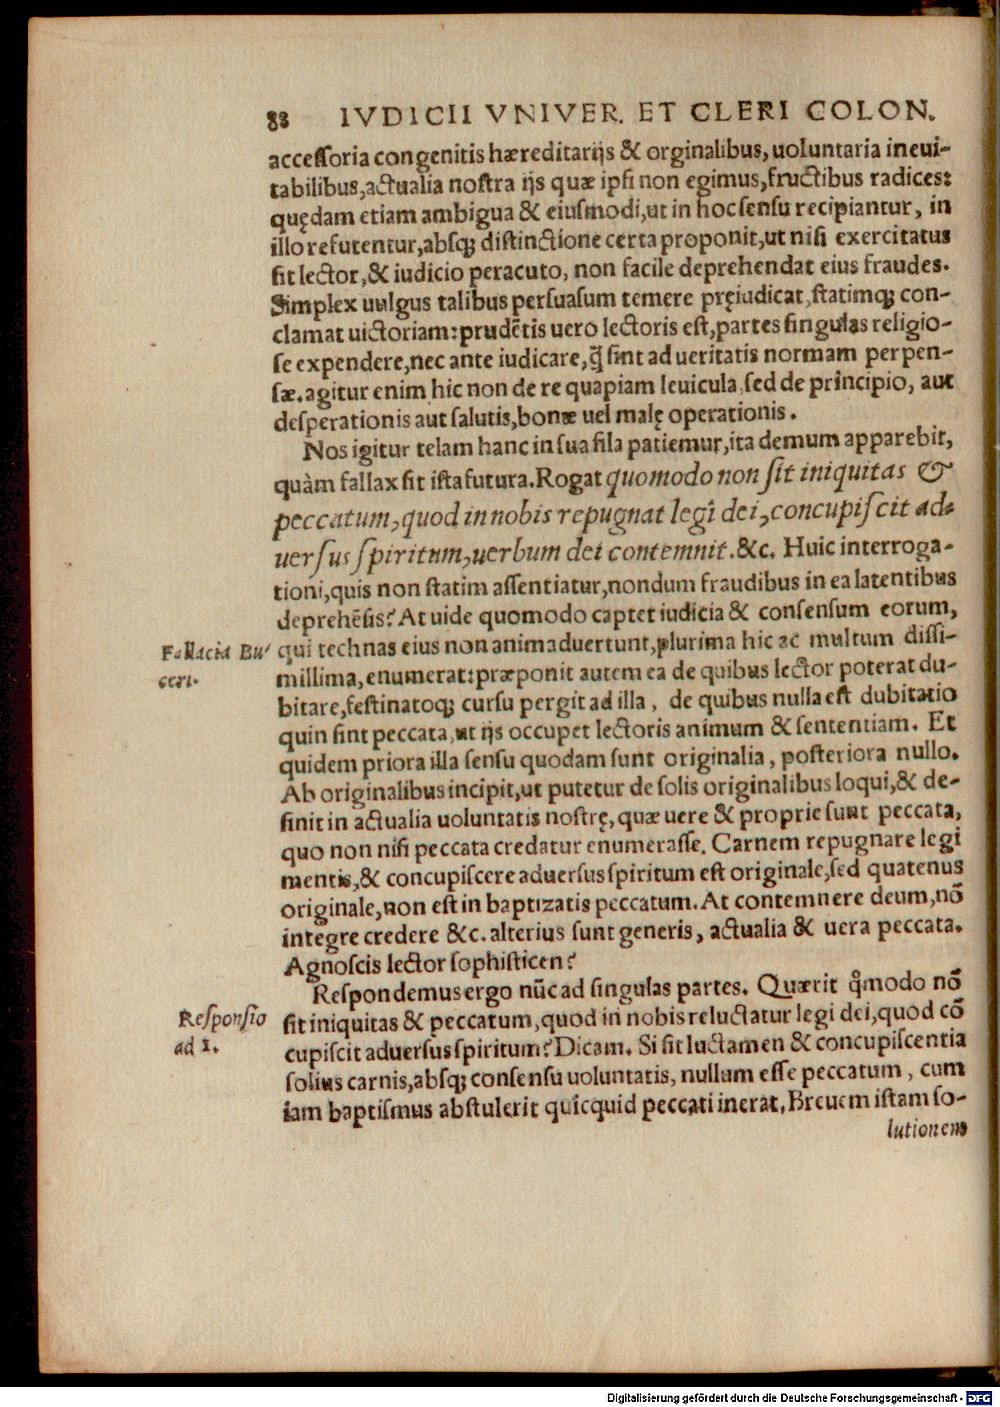 88 IVDICII VNIVER. ET CLERI COLON.
accessoria congenitis hæreditarijs & orginalibus, uoluntaria ineui-
tabilibus, actualia nostra ijs quæ ipsi non egimus, fructibus radices:
quędam etiam ambigua & eiusmodi, ut in hoc sensu recipiantur, in
illo refutentur, absq; distinctione certa proponit, ut nisi exercitatus
sit lector, & iudicio peracuto, non facile deprehendat eius fraudes.
Simplex uulgus talibus persuasum temere pręiudicat, statimq; con-
clamat uictoriam: prudētis uero lectoris est, partes singulas religio-
se expendere, nec ante iudicare, q̃ sint ad ueritatis normam perpen-
sæ. agitur enim hic non de re quapiam leuicula, sed de principio, aut
desperationis aut salutis, bonæ uel malę operationis.
Nos igitur telam hanc in sua fila patiemur, ita demum apparebit,
quàm fallax sit ista futura. Rogat quomodo non sit iniquitas &
peccatum, quod in nobis repugnat legi dei, concupiscit ad-
uersus spiritum, uerbum dei contemnit. &c. Huic interroga-
tioni, quis non statim assentiatur, nondum fraudibus in ea latentibus
deprehēsis? At uide quomodo captet iudicia & consensum eorum,
Fallacia Bu-
ceri.
qui technas eius non animaduertunt, plurima hic ac multum dissi-
millima, enumerat: præponit autem ea de quibus lector poterat du-
bitare, festinatoq; cursu pergit ad illa, de quibus nulla est dubitatio
quin sint peccata, ut ijs occupet lectoris animum & sententiam. Et
quidem priora illa sensu quodam sunt originalia, posteriora nullo.
Ab originalibus incipit, ut putetur de solis originalibus loqui, & de-
sinit in actualia uoluntatis nostrę, quæ uere & proprie sunt peccata,
quo non nisi peccata credatur enumerasse. Carnem repugnare legi
mentis, & concupiscere aduersus spiritum est originale, sed quatenus
originale, non est in baptizatis peccatum. At contemnere deum, nō
integre credere &c. alterius sunt generis, actualia & uera peccata.
Agnoscis lector sophisticen?
Respondemus ergo nūc ad singulas partes. Quærit qͦmodo nō
Responsio
ad 1.
sit iniquitas & peccatum, quod in nobis reluctatur legi dei, quod cō
cupiscit aduersus spiritum? Dicam. Si sit luctamen & concupiscentia
solius carnis, absq; consensu uoluntatis, nullum esse peccatum, cum
iam baptismus abstulerit quicquid peccati inerat. Breuem istam so-
lutionem
Digitalisierung gefördert durch die Deutsche Forschungsgemeinschaft - DFG